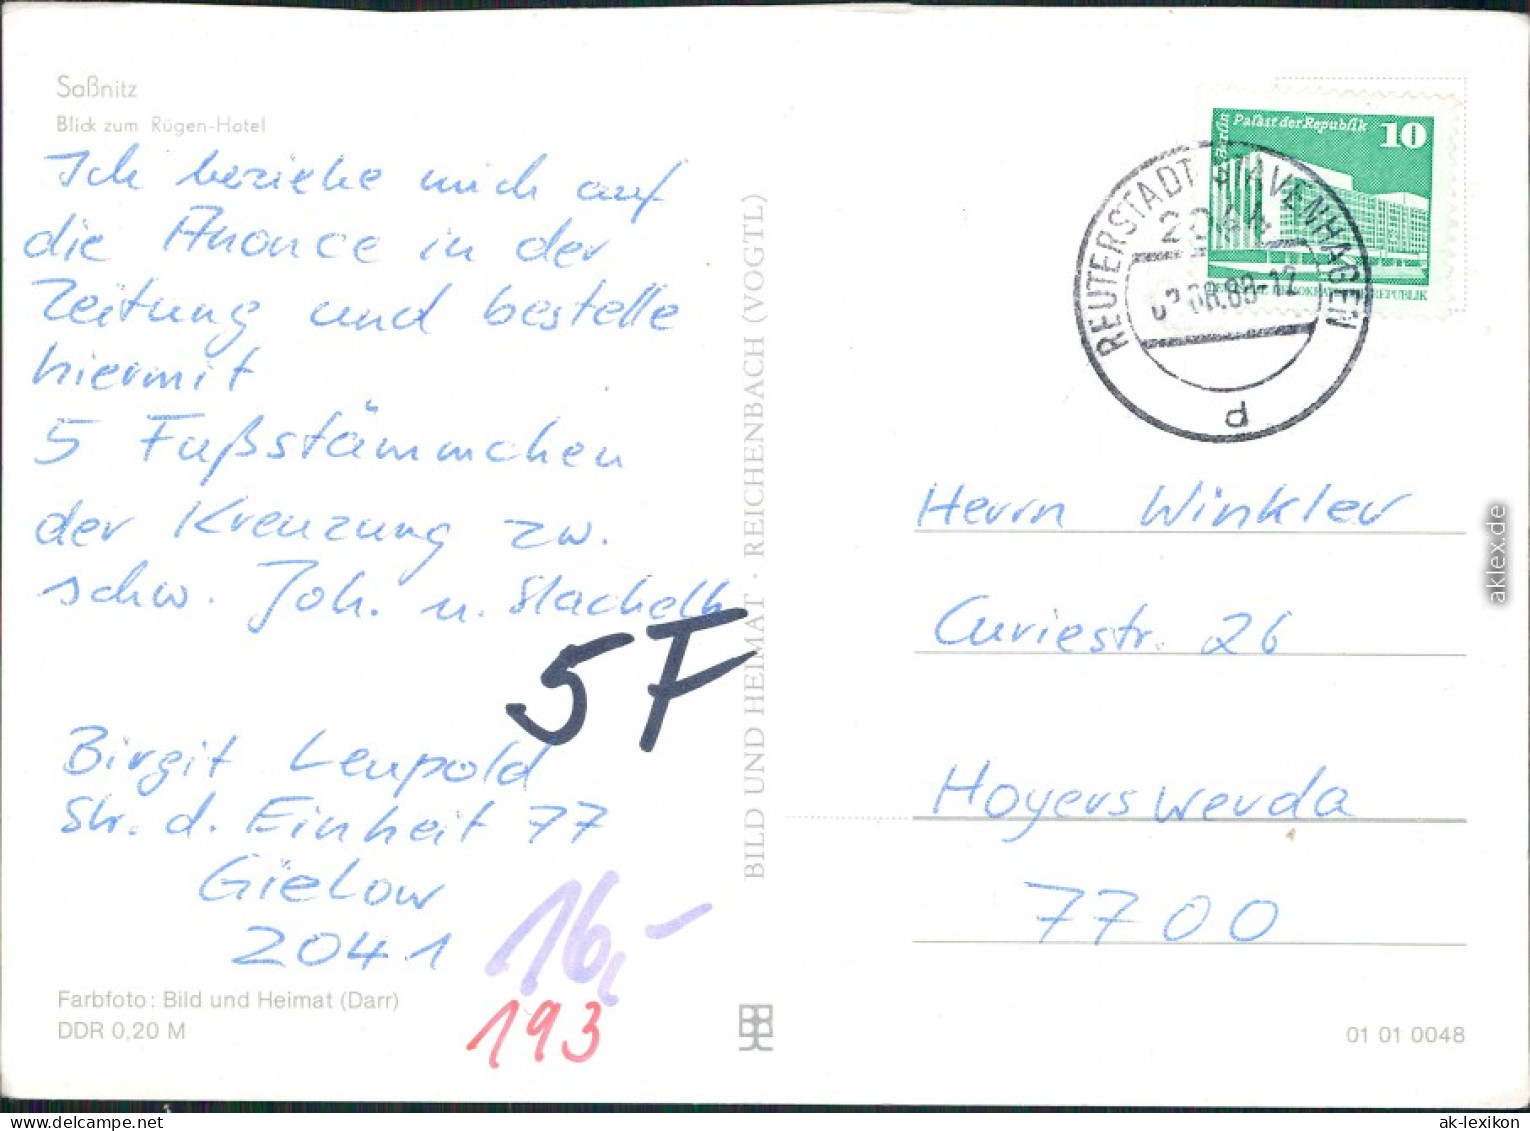 Saßnitz
Blick zum Rügen-Hotel
Ich beziehe mich auf
die Anonce in der
Zeitung und bestelle
hiermit
5 Fußstämmchen
der Kreuzung zw.
schw. Joh. u. Stachelb
5F
Birgit Leupold
Str. d. Einheit 77
Gielow
2041
16,-
193
Farbfoto: Bild und Heimat (Darr)
DDR 0,20 M
BILD UND HEIMAT · REICHENBACH (VOGTL)
Berlin
Palast der Republik
10
REPUBLIK
REUTERSTADT STAVENHAGEN
2044
08.89-12
d
Herrn Winkler
Curiestr. 26
Hoyerswerda
7700
01 01 0048
aklex.de
ak-lexikon